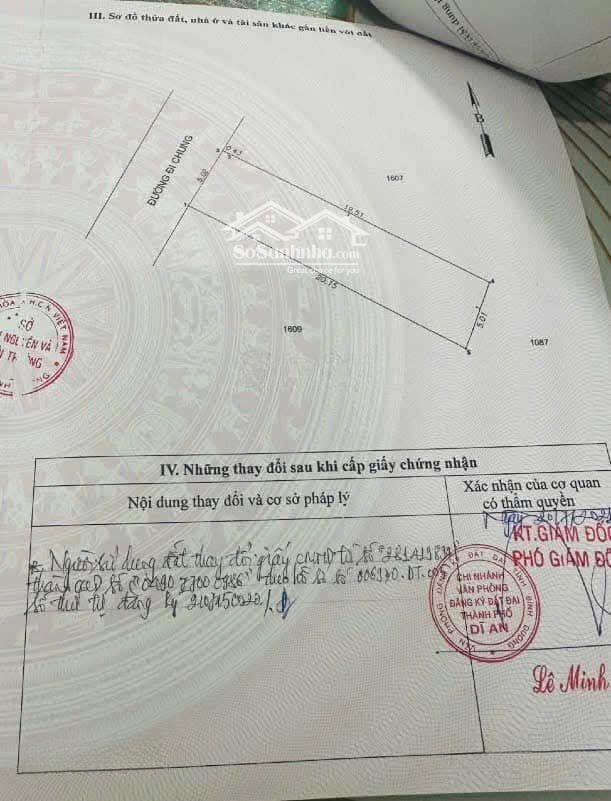 III. Sơ đồ thửa đất, nhà ở và tài sản khác gắn liền với đất
B
ĐƯỜNG ĐI CHUNG
0.43
5.02
19.51
1607
20.15
5.01
1609
1087
SoSanhnha.com
Great choice for you
VIỆT NAM
SỞ
IV. Những thay đổi sau khi cấp giấy chứng nhận
Nội dung thay đổi và cơ sở pháp lý
Xác nhận của cơ quan
có thẩm quyền
Người sử dụng đất thay đổi giấy CMND từ số
thành số theo hồ sơ số
số thứ tự đăng ký
Ngày
KT.GIÁM ĐỐC
PHÓ GIÁM ĐỐ
CHI NHÁNH
VĂN PHÒNG
ĐĂNG KÝ ĐẤT ĐAI
THÀNH PHỐ
DĨ AN
VĂN PHÒNG ĐĂNG KÝ ĐẤT ĐAI TỈNH BÌNH DƯƠNG
Lê Minh